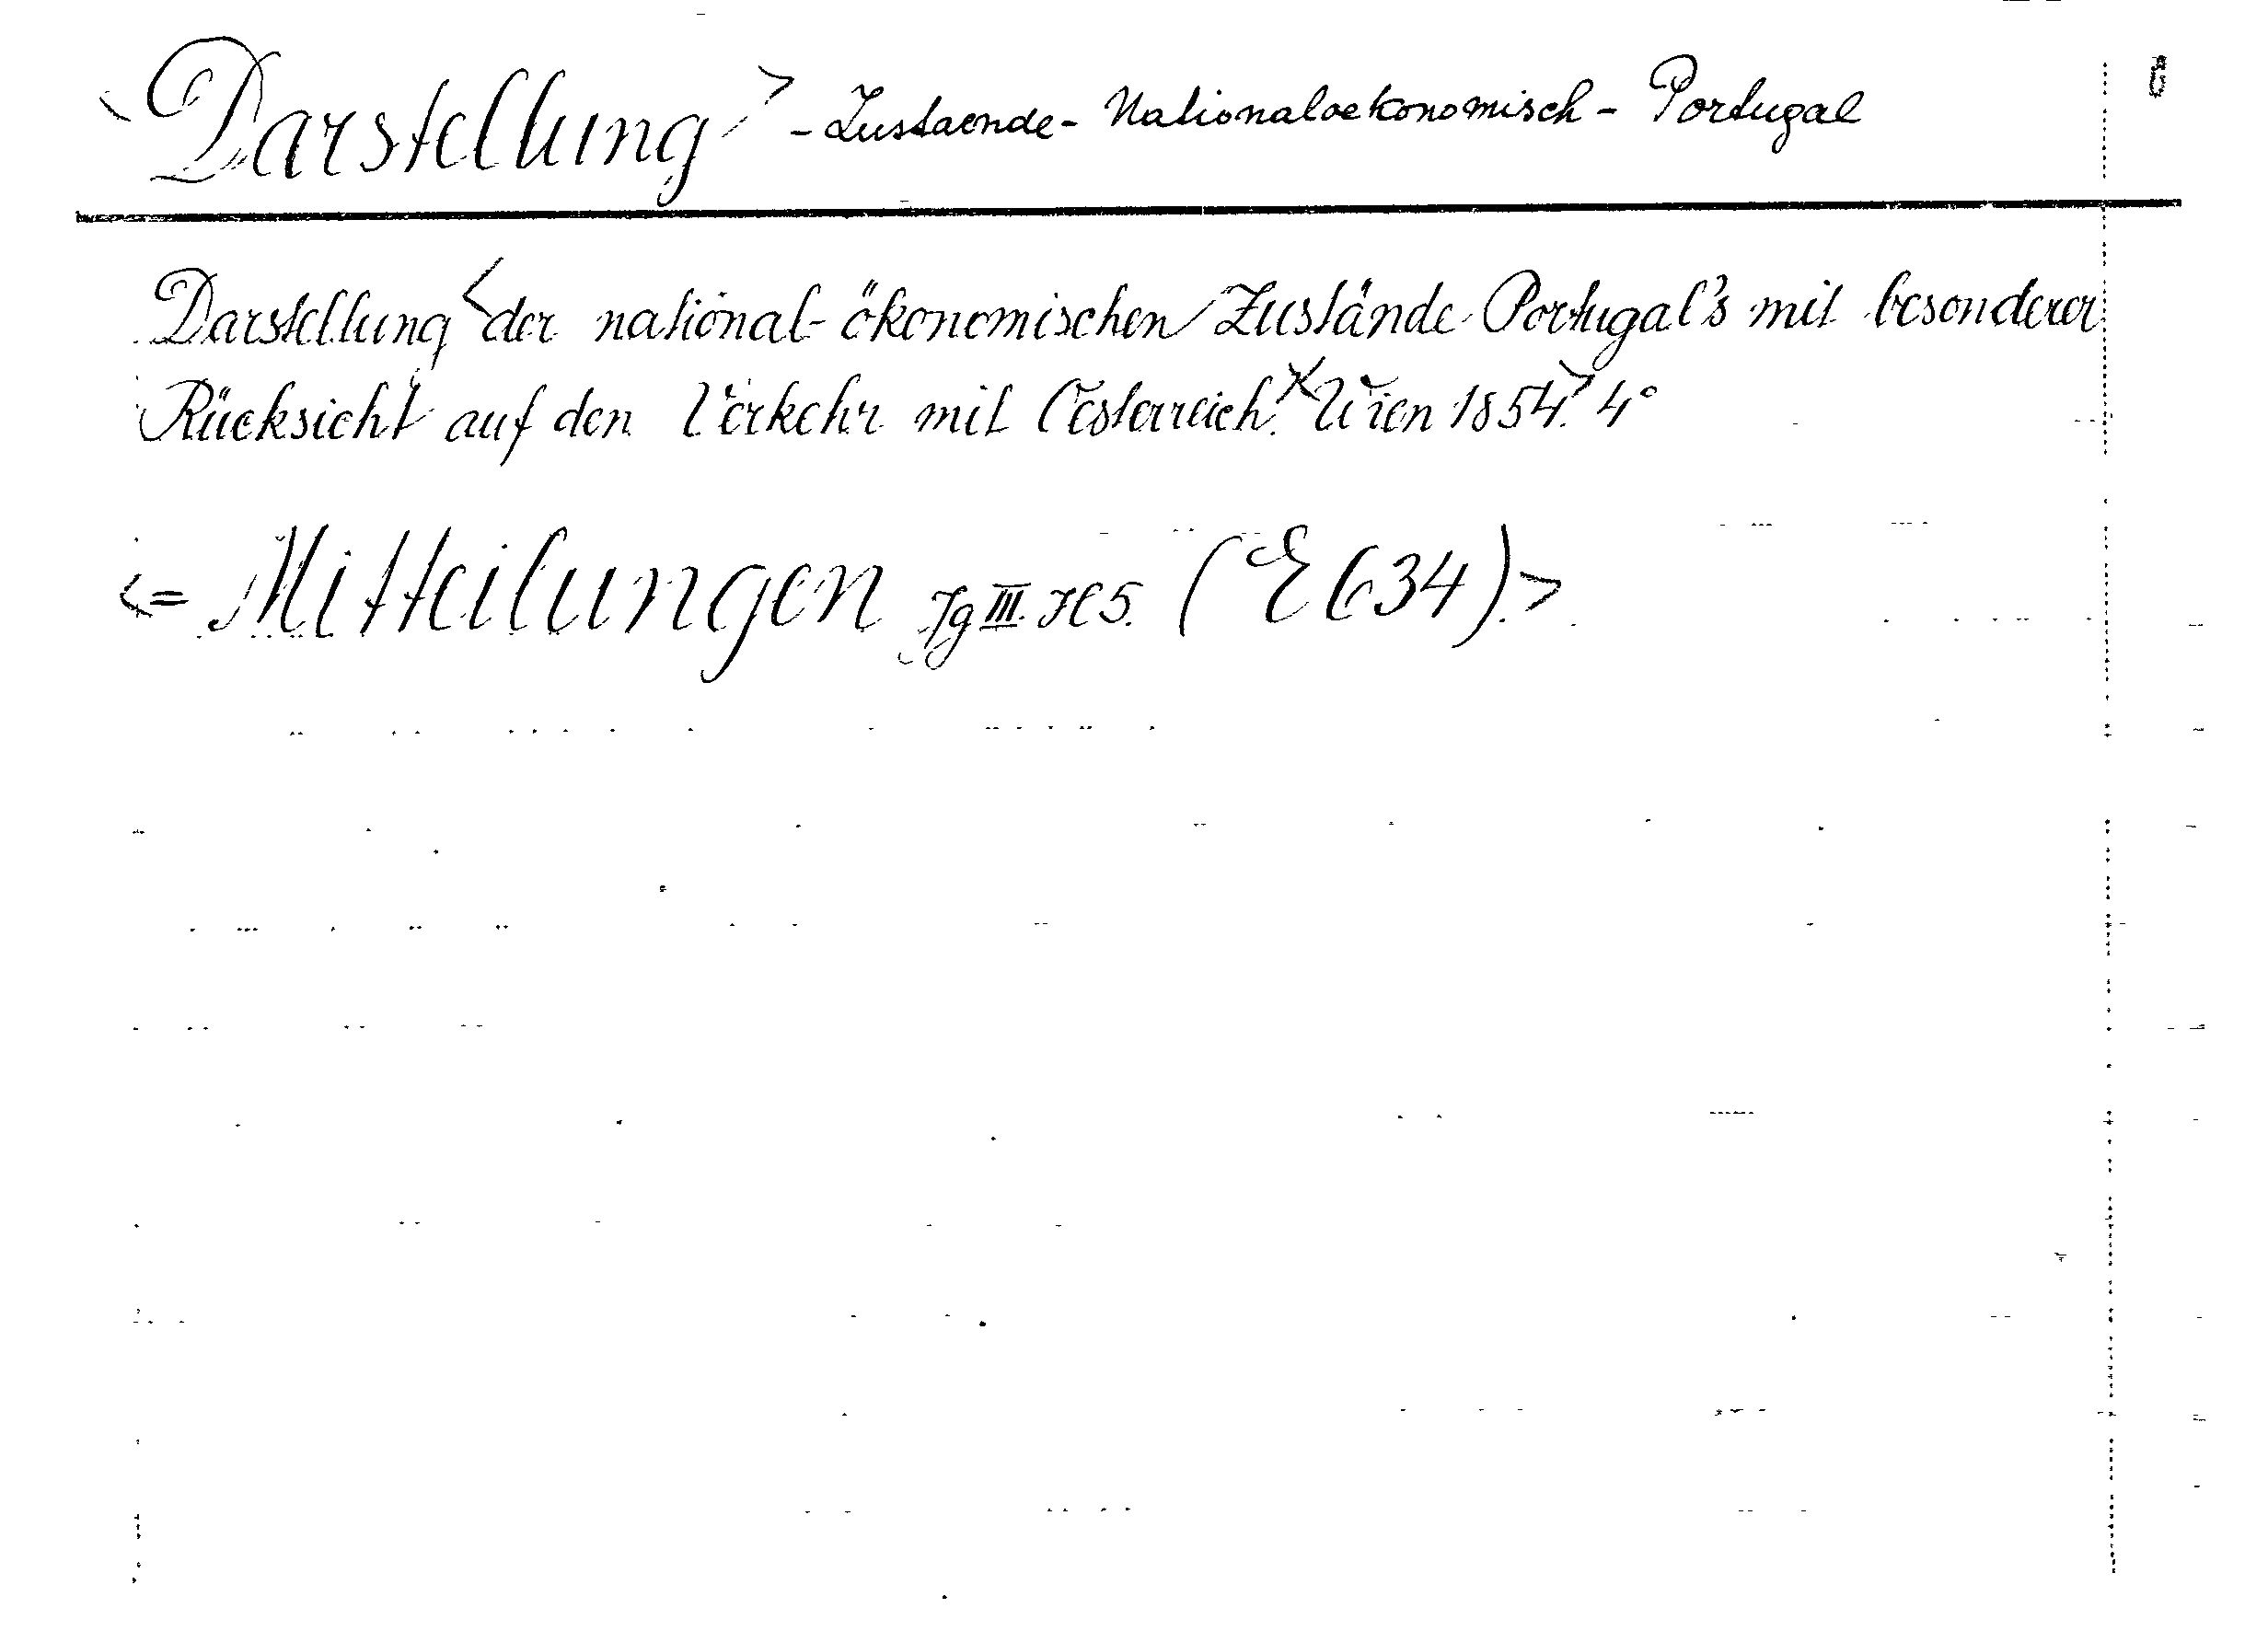 <Darstellung> - Zustaende - Nationaloekonomisch - Portugal
Darstellung <der national-ökonomischen Zustände Portugal's mit besonderer
Rücksicht auf den Verkehr mit Oesterreich.>< Wien 1854.> 4°
<= Mitteilungen Jg III. H 5. (E 634).>